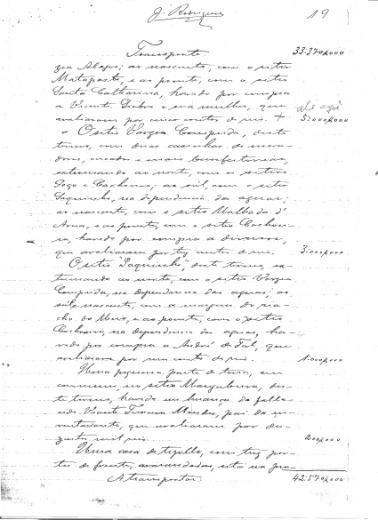 J. Rodrigues
19
Transporte 33:370#000
gôa Alapo; ao nascente, com o sitio
Matapasto, e ao poente, com o sitio
Santa Catharina, havido por compra
a Vicente e sua mulher, que
avaliaram por cinco contos de reis. + 5:000#000
O sitio Vargea Comprida, deste
termo, com duas casinhas de mora-
dores, cercados e mais bemfeitorias,
extremando ao norte, com os sitios
e Cachoeira, ao sul, com o sitio
Joquinho, na dependencia das aguas;
ao nascente, com o sitio Malhada d'
e ao poente, com o sitio Cachoei-
ra, havido por compra a diversos,
que avaliaram por tres contos de reis. 3:000#000
O sitio "Joquinho", deste termo, ex-
tremando ao norte, com o sitio Vargea
Comprida, na dependencia das aguas; ao
sul e nascente, com a margem do ria-
cho do e ao poente, com o sitio
Cachoeira, na dependencia das aguas, ha-
vido por compra a André de Tal, que
avaliaram por um conto de reis. 1:000#000
Uma pequena parte de terra, em
commum, no sitio deste
termo, havido em herança do falle-
cido Vicente Mendes, pai da in-
ventariante, que avaliaram por du-
zentos mil reis. 200#000
Uma casa de tijollo, com tres por-
tas de frente, sita na
A transportar 42:570#000